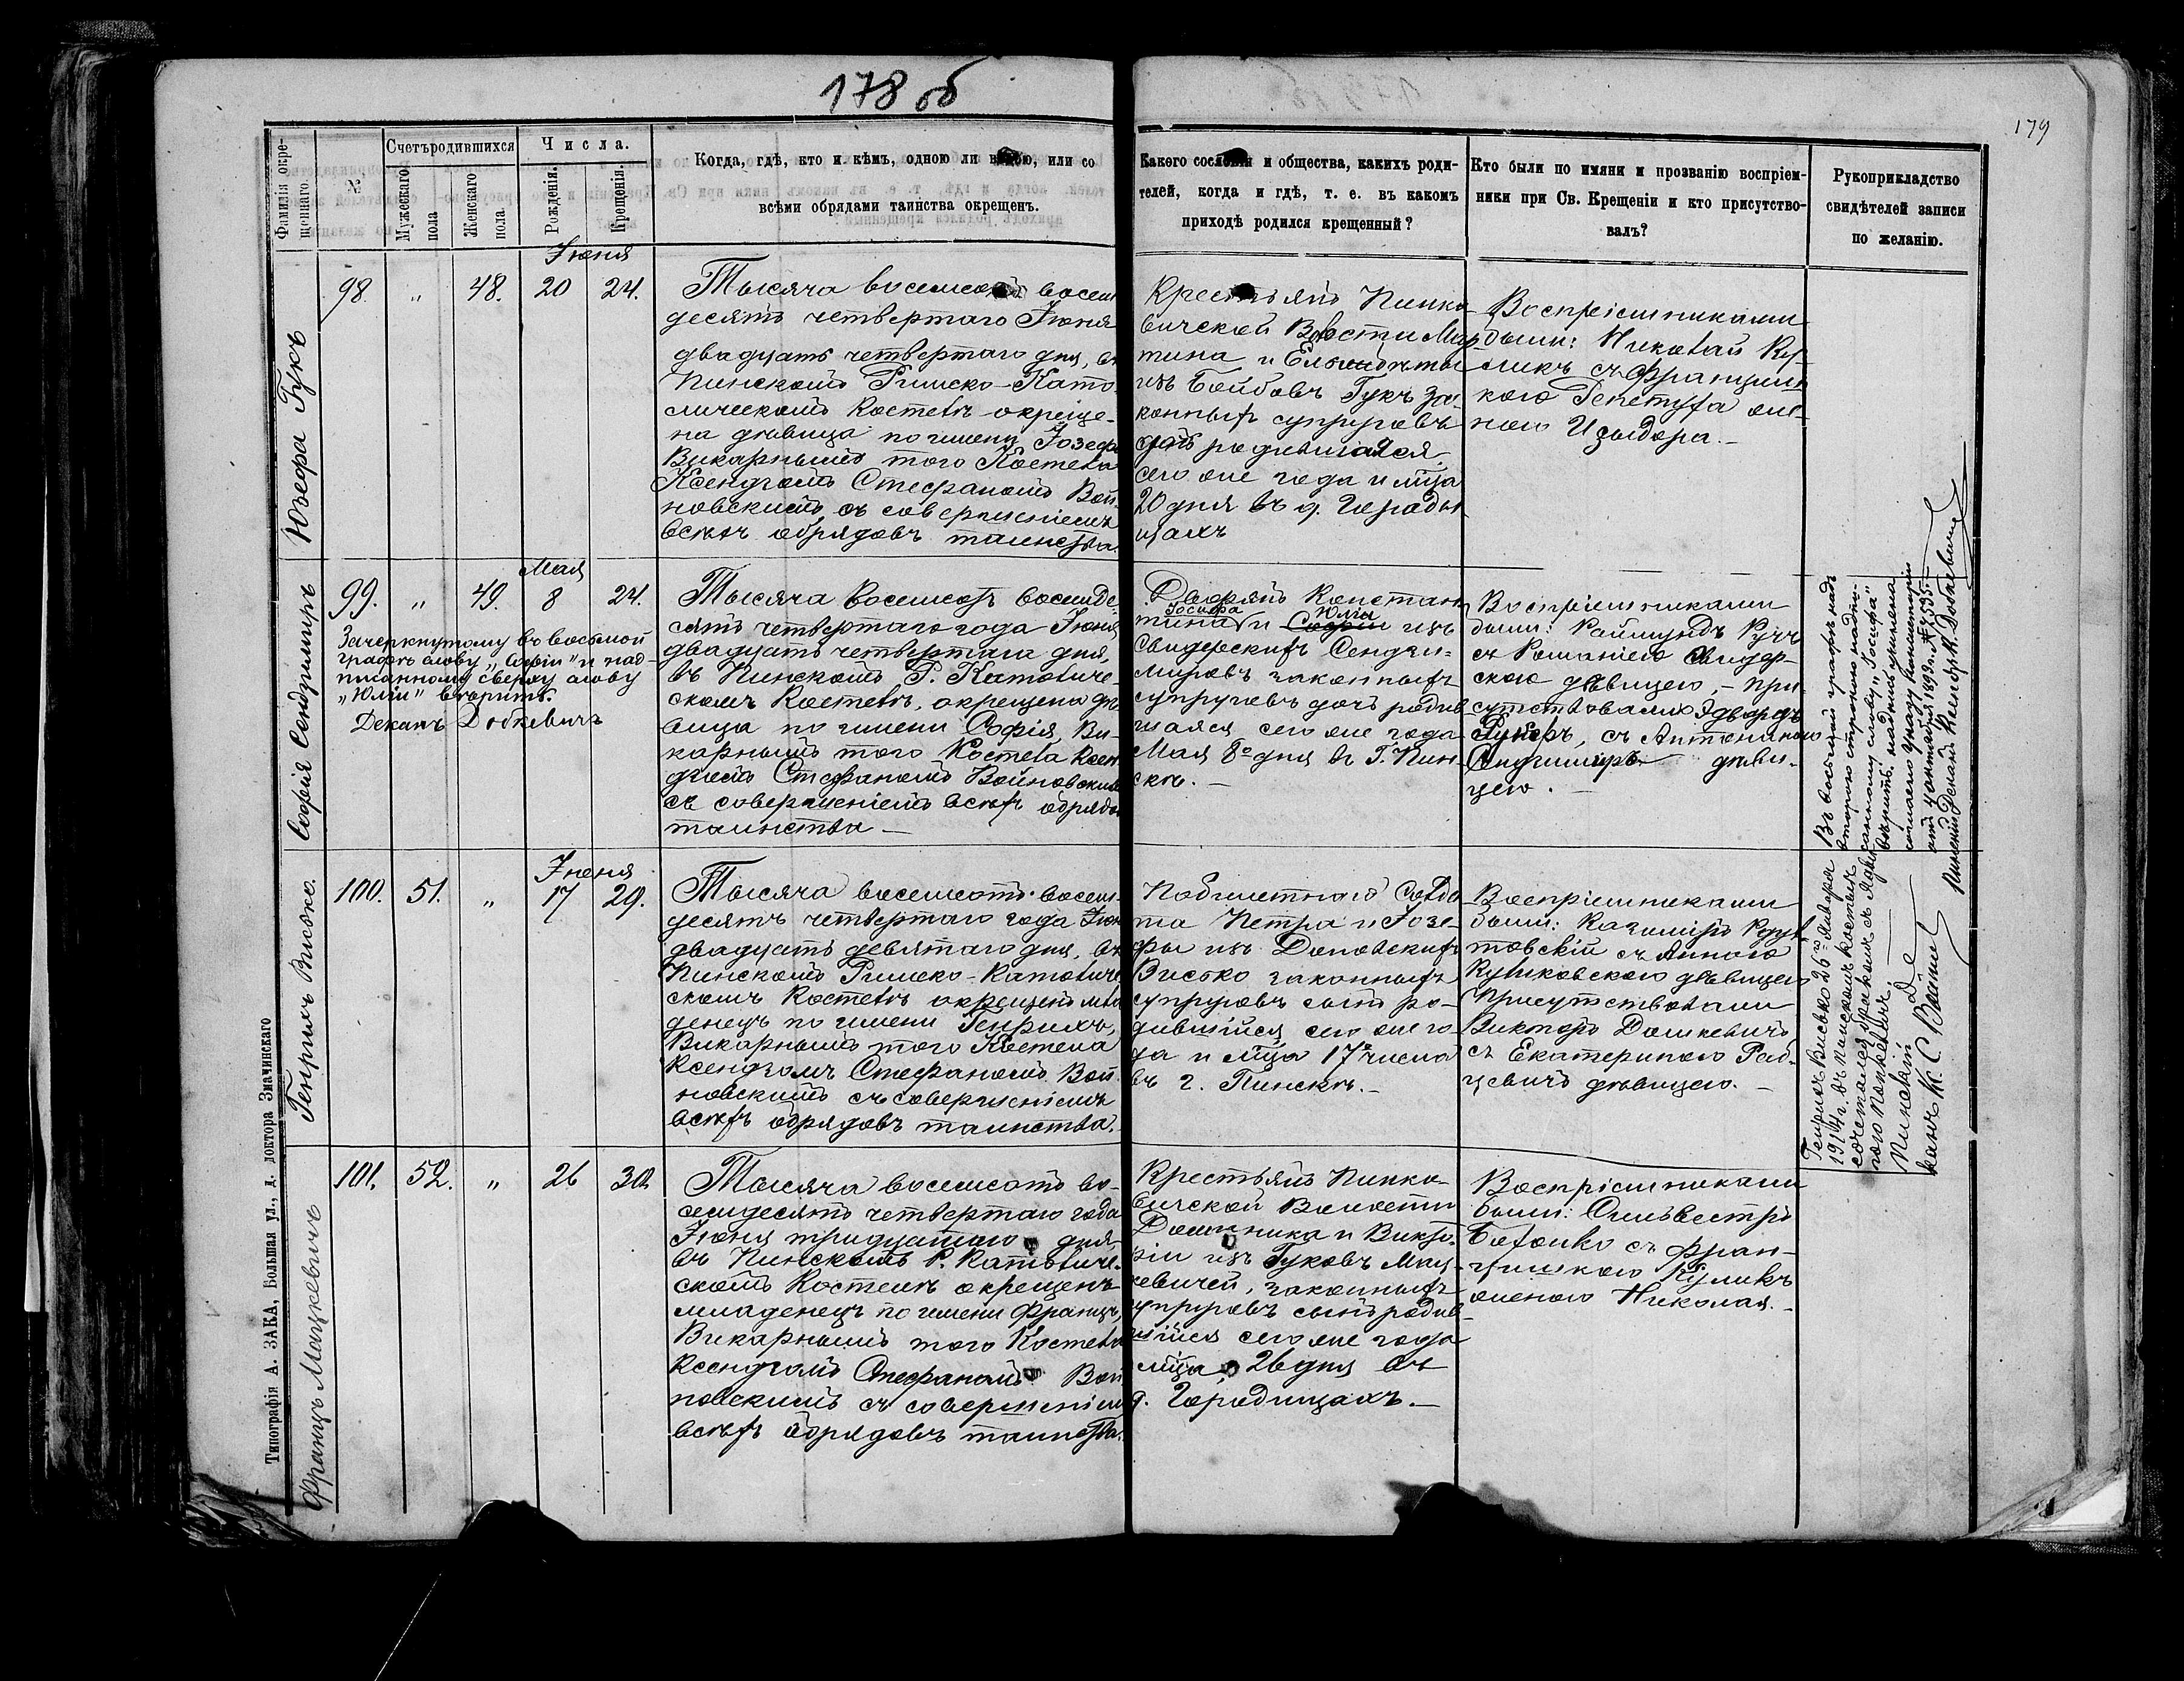 178 об
179
Фамилія окре-
щеннаго.
№
Счетъ родившихся
Мужескаго
пола
Женскаго
пола.
Числа.
Рожденія.
Крещенія.
Когда, гдѣ, кто и кѣмъ, одною ли водою, или со
всѣми обрядами таинства окрещенъ.
Какого сословія и общества, какихъ роди-
телей, когда и гдѣ, т. е. въ какомъ
приходѣ родился крещенный?
Кто были по имяни и прозванію воспріем-
ники при Св. Крещеніи и кто присутство-
валъ?
Рукоприкладство
свидѣтелей записи
по желанію.
Юзефа Гукъ
Іюня
98. " 48. 20 24.
Тысяча восемсотъ восем
десятъ четвертаго Іюня
двадцать четвертаго дня, въ
Пинскомъ Римско-Като-
лическомъ Костелѣ окреще-
на дѣвица по имени Іозефа
Викарнымъ того Костела
Ксендзомъ Стефаномъ Вой-
новскимъ съ совершеніемъ
всѣхъ обрядовъ таинства.
Крестьянъ Пинко-
вичской Волости Мар-
тина и Ельжбѣты
изъ Бойбовъ Гукъ за-
конныхъ супруговъ
дочь родившаяся
сего же года и мѣца
20 дня въ д. Городы-
щахъ
Воспріемниками
были: Николай Ку-
ликъ съ Францишк
кою Гепетуха же-
ною Изыдора.-
Софія Сендзимиръ
Мая
99. " 49. 8 24.
Зачеркнутому въ восьмой
графѣ слову „Софіи" и над-
писанному сверху слову
„Юліи" вѣрить.
Деканъ Добкевичъ
Тысяча восемсотъ восемде-
сятъ четвертаго года Іюня
двадцать четвертаго дня,
въ Пинскомъ Р. Католиче-
скомъ Костелѣ, окрещена дѣ-
вица по имени Софія, Ви-
карнымъ того Костела Ксен
дзомъ Стефаномъ Войновскимъ
съ совершеніемъ всѣхъ обрядовъ
таинства —
Дворянъ Констан
Іосифа Юліи
тина и Софіи изъ
Свидерскихъ Сендзи-
мировъ законныхъ
супруговъ дочь родив
шаяся сего же года
Мая 8го дня въ Г. Пин-
скѣ. -
Воспріемниками
были: Раймундъ Ручъ
съ Романіею Свидер-
скою дѣвицею, - при-
сутствовали Эдвардъ
съ Антониною
Сендзимиръ дѣви-
цею. -
Въ восьмой графѣ надъ
второю строкою надпи-
санному слову „Іосифа"
вѣрить. надпись учинена
согласно Указу Консисторіи
отъ 4 октября 1893 г. № 5395.-
Пинскій Деканъ Ксендзъ К. Добкевичъ
Генрихъ Висько.
Іюня
100. 51. " 17 29.
Тысяча восемсотъ восем-
десятъ четвертаго года Іюн
двадцать девятаго дня, въ
Пинскомъ Римско-Католиче
скомъ Костелѣ окрещенъ мла
денецъ по имени Генрихъ,
Викарнымъ того Костела
Ксендзомъ Стефаномъ Вой
новскимъ съ совершеніемъ
всѣхъ обрядовъ таинства.
Побилетнаго Солда
та Петра и Іозе-
фы изъ Доновскихъ
Висько законныхъ
супруговъ сынъ ро-
дившійся сего же го-
да и мѣца 17го числа
въ г. Пинскѣ.-
Воспріемниками
были: Казиміръ
съ Анною
дѣвицею
Присутствовали
Викторъ Дашкевичъ
съ Екатериною Рад-
цевичъ дѣвицею. -
Генрихъ Висько 26го Января
1914 г. въ Пинскомъ костелѣ
сочетался бракомъ съ Ядви-
гою Попкевичъ.
Пинскій Де
канъ К. С.
Францъ Мацкевичъ
101. 52. " 26 30.
Тысяча восемсотъ во-
семдесятъ четвертаго года
Іюня тридцатаго дня,
въ Пинскомъ Р. Католиче-
скомъ Костелѣ окрещенъ
младенецъ по имени Францъ,
Викарнымъ того Костела
Ксендзомъ Стефаномъ Вой
новскимъ съ совершеніемъ
всѣхъ обрядовъ таинства.
Крестьянъ Пинко-
вичской Волости
Доминика и Викто-
ріи изъ Гуковъ Мац-
кевичей, законныхъ
супруговъ сынъ родив-
шійся сего же года
мѣца 26 дня въ
д. Городищахъ. —
Воспріемниками
были: Сильвестръ
съ Фран-
цишкою Куликъ
женою Николая. -
Типографія А. ЗАКА, Большая ул., д. доктора Значинскаго